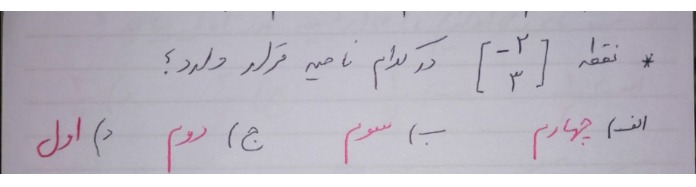 * نقطه [-۲ ۳] در کدام ناحیه قرار دارد؟
الف) چهارم ب) سوم ج) دوم د) اول